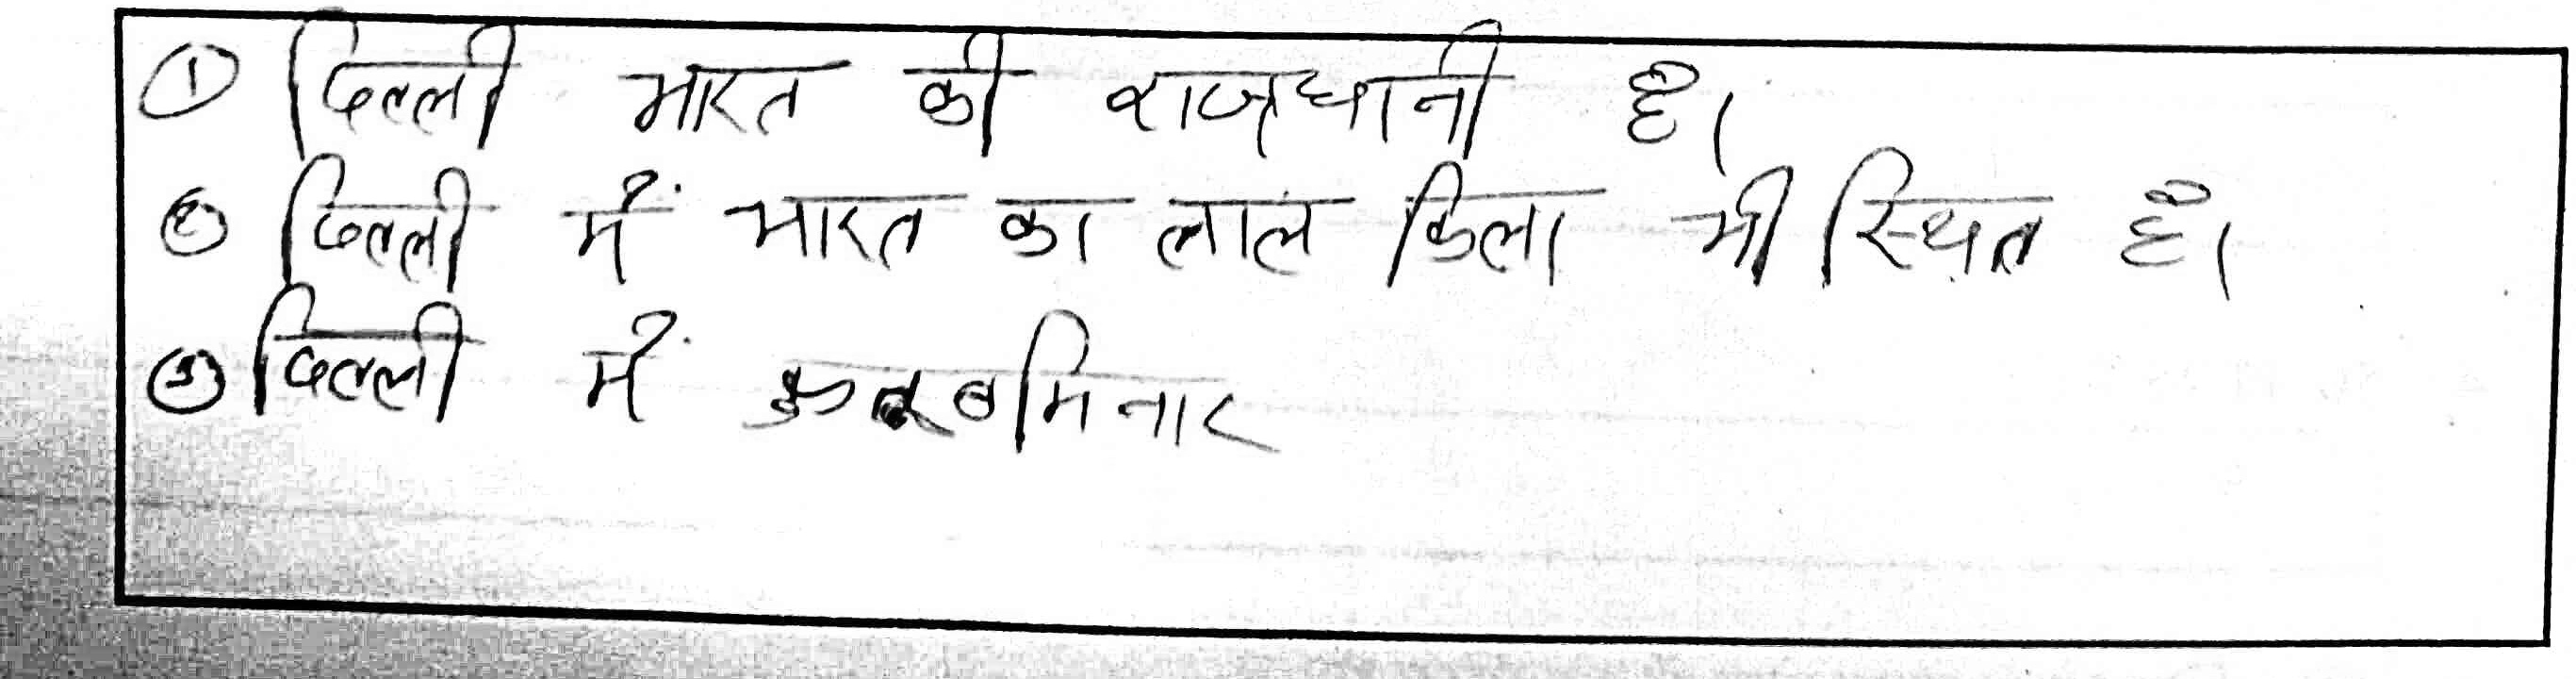 ① दिल्ली भारत की राजधानी है।
② दिल्ली में भारत का लाल किला भी स्थित है।
③ दिल्ली में कुतूबमिनार